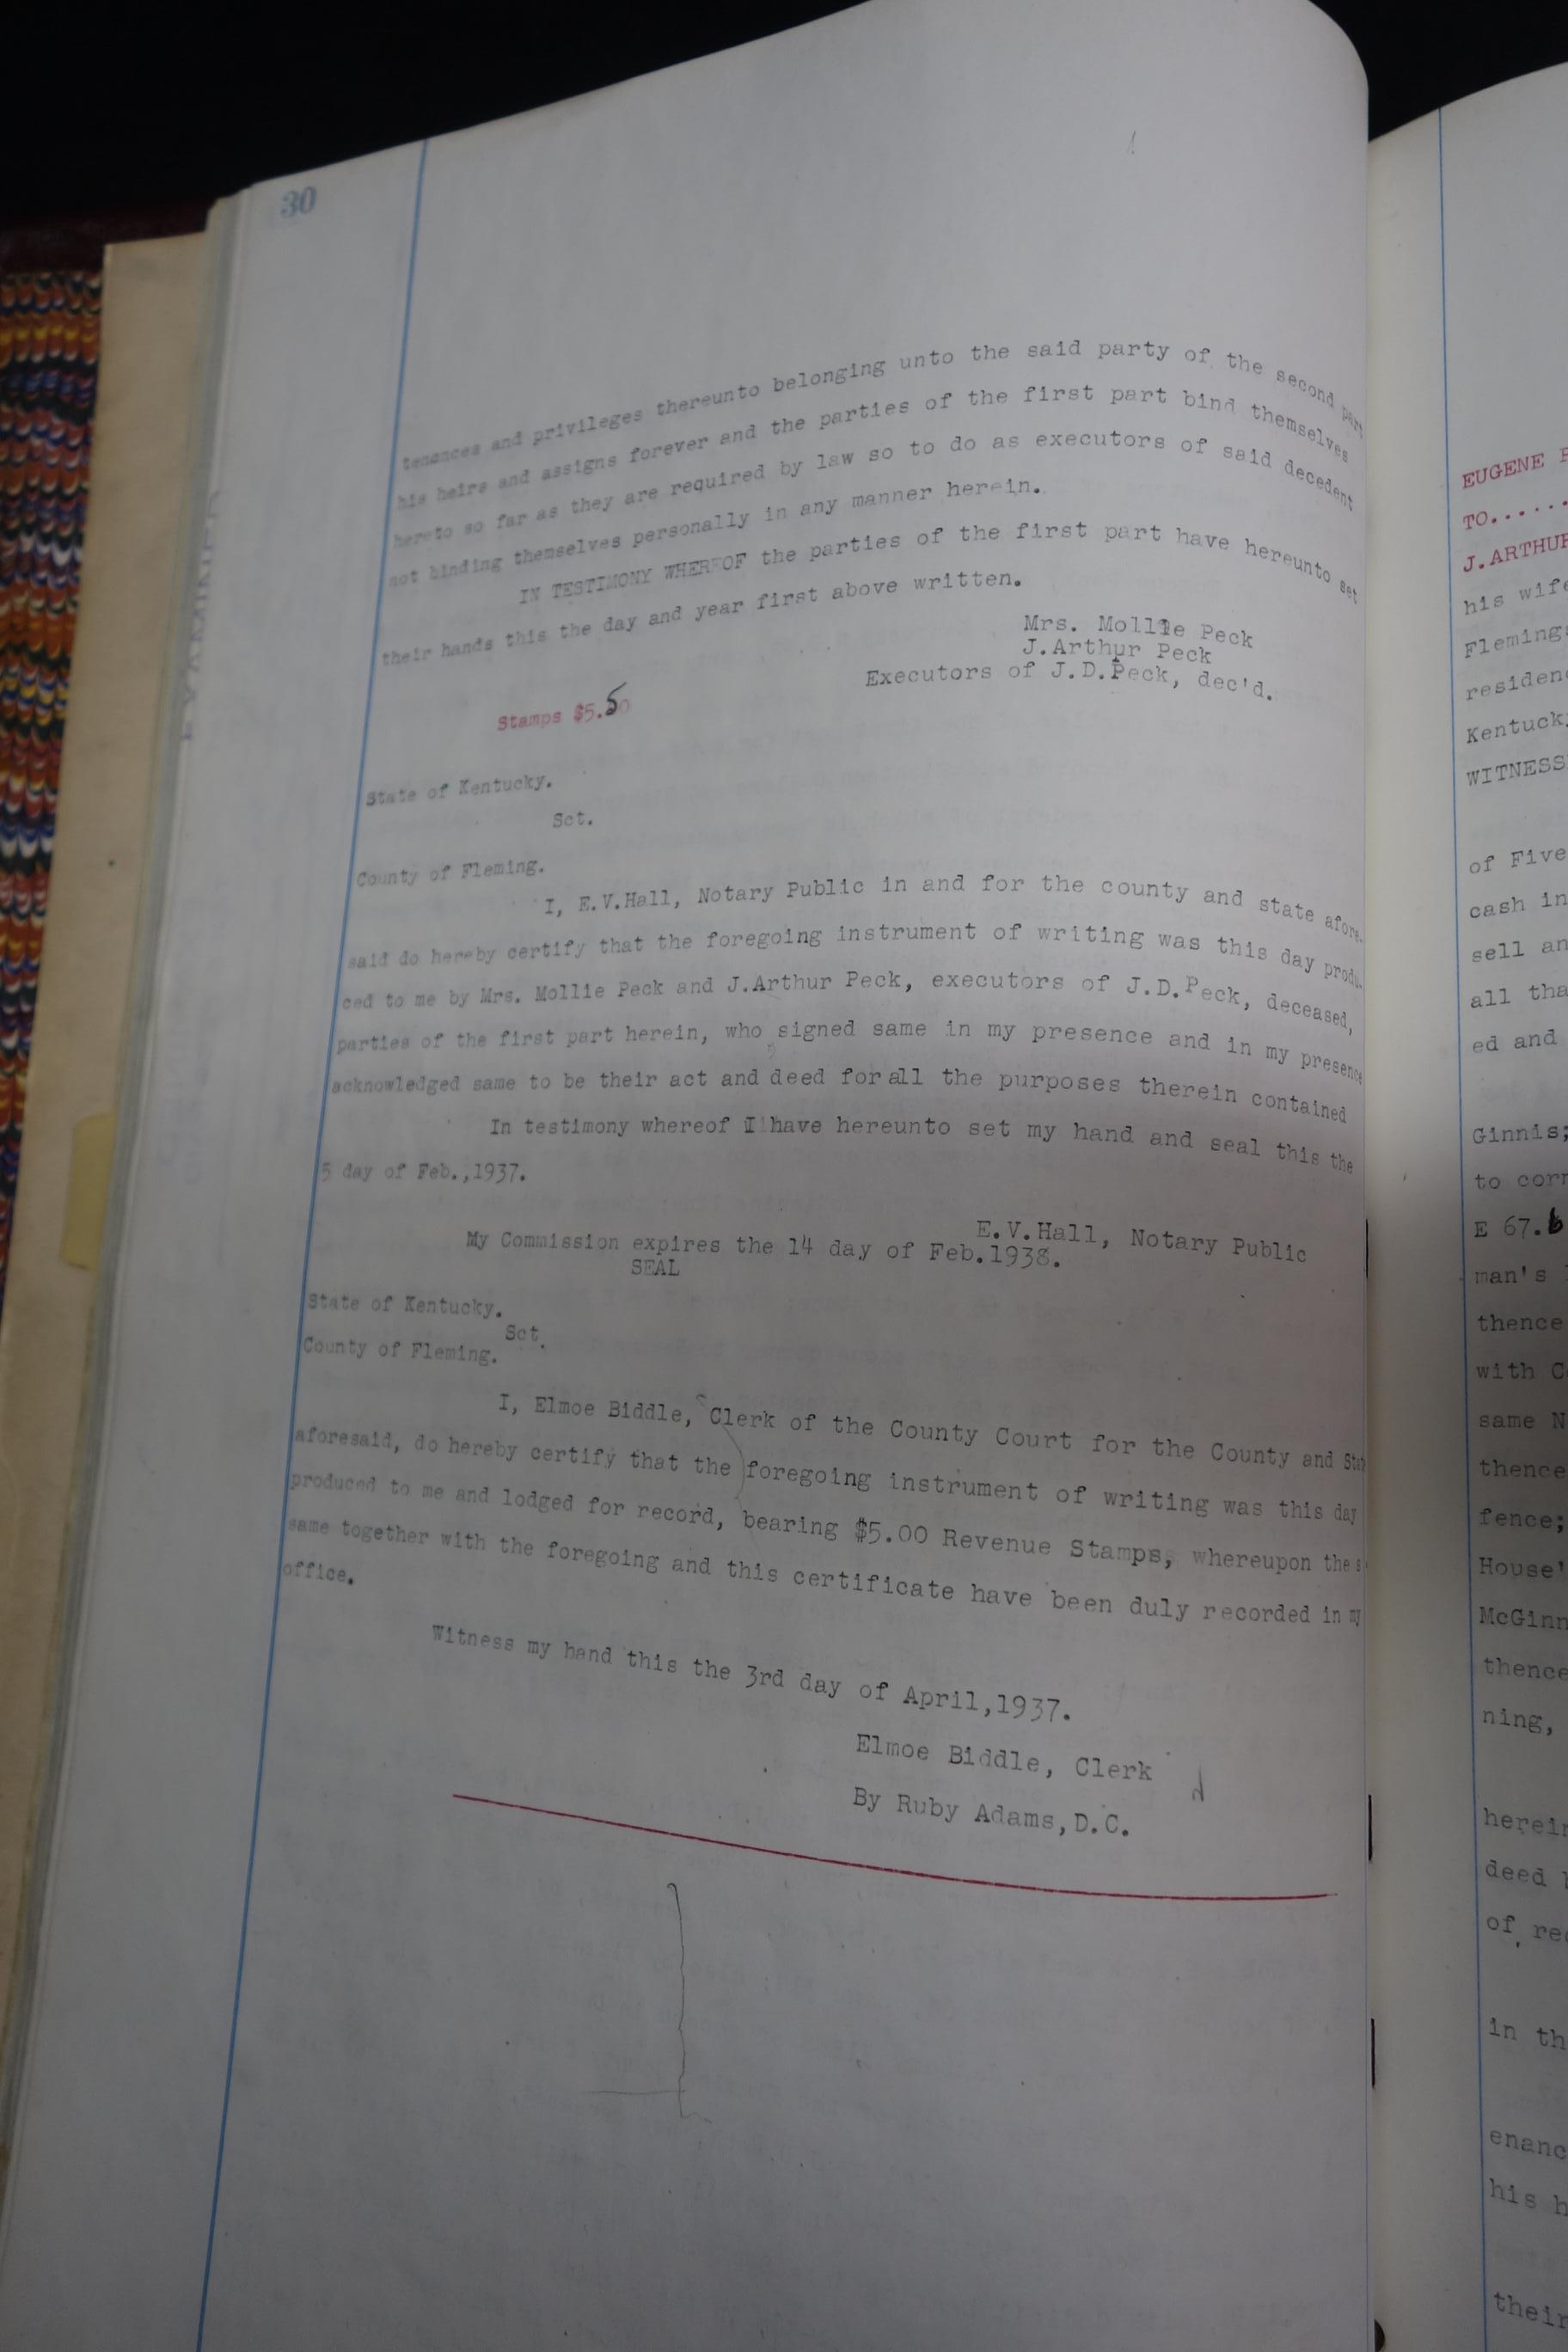 30
tenances and privileges thereunto belonging unto the said party of the second part
his heirs and assigns forever and the parties of the first part bind themselves
hereto so far as they are required by law so to do as executors of said decedent
not binding themselves personally in any manner herein.
IN TESTIMONY WHEREOF the parties of the first part have hereunto set
their hands this the day and year first above written.
Mrs. Mollie Peck
J.Arthur Peck
Executors of J.D.Peck, dec'd.
Stamps $5.50
State of Kentucky.
Sct.
County of Fleming.
I, E.V.Hall, Notary Public in and for the county and state afore-
said do hereby certify that the foregoing instrument of writing was this day produ-
ced to me by Mrs. Mollie Peck and J.Arthur Peck, executors of J.D.Peck, deceased,
parties of the first part herein, who signed same in my presence and in my presence
acknowledged same to be their act and deed for all the purposes therein contained
In testimony whereof I have hereunto set my hand and seal this the
5 day of Feb.,1937.
E.V.Hall, Notary Public
My Commission expires the 14 day of Feb.1938.
SEAL
State of Kentucky.
Sct.
County of Fleming.
I, Elmoe Biddle, Clerk of the County Court for the County and State
aforesaid, do hereby certify that the foregoing instrument of writing was this day
produced to me and lodged for record, bearing $5.00 Revenue Stamps, whereupon the
same together with the foregoing and this certificate have been duly recorded in my
office.
Witness my hand this the 3rd day of April,1937.
Elmoe Biddle, Clerk
By Ruby Adams,D.C.
EUGENE
TO......
J.ARTHUR
his wife
Flemings
residenc
Kentucky
WITNESS
of Five
cash in
sell an
all tha
ed and
Ginnis;
to corn
E 67.6
man's
thence
with C
same N
thence
fence;
House'
McGinn
thence
ning,
herein
deed
of rec
in th
enanc
his h
their